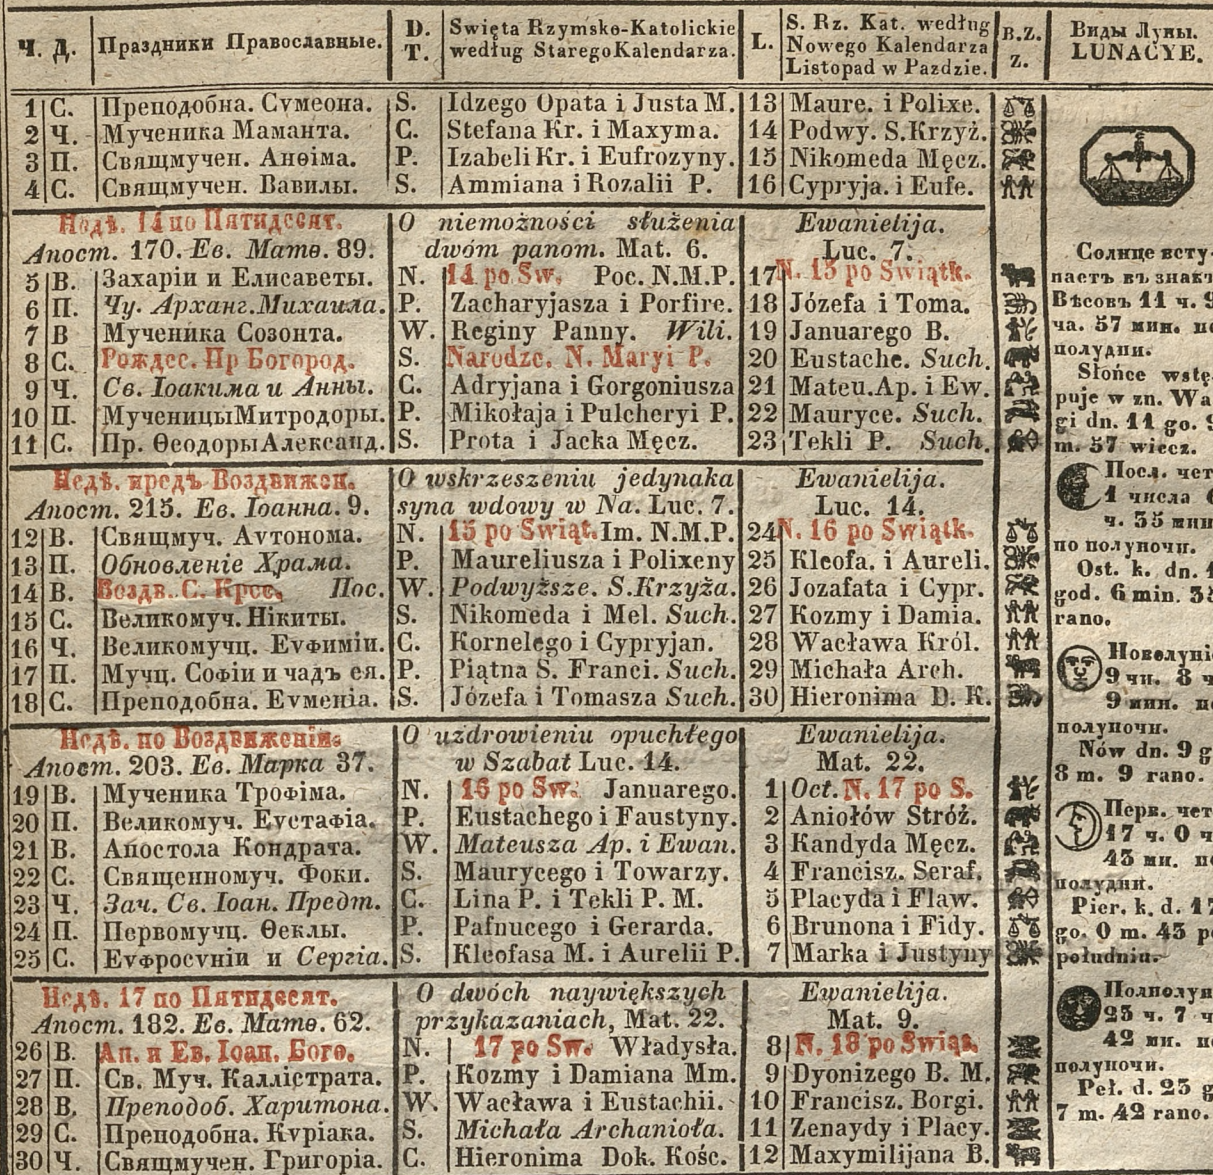 Ч. Д. Праздники Православные. D. T. Swięta Rzymsko-Katolickie według Starego Kalendarza. L. S. Rz. Kat. według Nowego Kalendarza Listopad w Pazdzie. B.Z. Z. Виды Луны. LUNACYE.
1 С. Преподобна. Сѵмеона. S. Idzego Opata i Justa M. 13 Maure. i Polixe.
2 Ч. Мученика Маманта. C. Stefana Kr. i Maxyma. 14 Podwy. S.Krzyż.
3 П. Свящмучен. Анѳіма. P. Izabeli Kr. i Eufrozyny. 15 Nikomeda Męcz.
4 С. Свящмучен. Вавилы. S. Ammiana i Rozalii P. 16 Cypryja. i Eufe.
Недѣ. 14 по Пятидесят. O niemożności służenia Ewanielija.
Апост. 170. Ев. Матѳ. 89. dwóm panom. Mat. 6. Luc. 7.
5 В. Захаріи и Елисаветы. N. 14 po Sw. Poc. N.M.P. 17 N. 15 po Swiątk.
6 П. Чу. Арханг. Михаила. P. Zacharyjasza i Porfire. 18 Józefa i Toma.
7 В Мученика Созонта. W. Reginy Panny. Wili. 19 Januarego B.
8 С. Рождес. Пр Богород. S. Narodze. N. Maryi P. 20 Eustache. Such.
9 Ч. Св. Іоакима и Анны. C. Adryjana i Gorgoniusza 21 Mateu. Ap. i Ew.
10 П. Мученицы Митродоры. P. Mikołaja i Pulcheryi P. 22 Mauryce. Such.
11 С. Пр. Ѳеодоры Александ. S. Prota i Jacka Męcz. 23 Tekli P. Such.
Недѣ. предъ Воздвижен. O wskrzeszeniu jedynaka Ewanielija.
Апост. 215. Ев. Іоанна. 9. syna wdowy w Na. Luc. 7. Luc. 14.
12 В. Свящмуч. Аѵтонома. N. 15 po Swiąt. Im. N.M.P. 24 N. 16 po Swiątk.
13 П. Обновленіе Храма. P. Maureliusza i Polixeny 25 Kleofa. i Aureli.
14 В. Воздв. С. Крес. Пос. W. Podwyższe. S.Krzyża. 26 Jozafata i Cypr.
15 С. Великомуч. Нікиты. S. Nikomeda i Mel. Such. 27 Kozmy i Damia.
16 Ч. Великомучц. Еѵфиміи. C. Kornelego i Cypryjan. 28 Wacława Król.
17 П. Мучц. Софіи и чадъ ея. P. Piątna S. Franci. Such. 29 Michała Arch.
18 С. Преподобна. Еѵменіа. S. Józefa i Tomasza Such. 30 Hieronima D. K.
Недѣ. по Воздвиженіи. O uzdrowieniu opuchłego Ewanielija.
Апост. 203. Ев. Марка 37. w Szabat Luc. 14. Mat. 22.
19 В. Мученика Трофіма. N. 16 po Sw. Januarego. 1 Oct. N. 17 po S.
20 П. Великомуч. Еустафіа. P. Eustachego i Faustyny. 2 Aniołów Stróż.
21 В. Апостола Кондрата. W. Mateusza Ap. i Ewan. 3 Kandyda Męcz.
22 С. Священномуч. Фоки. S. Maurycego i Towarzy. 4 Francisz. Seraf.
23 Ч. Зач. Св. Іоан. Предт. C. Lina P. i Tekli P. M. 5 Placyda i Flaw.
24 П. Первомучц. Ѳеклы. P. Pafnucego i Gerarda. 6 Brunona i Fidy.
25 С. Еѵфросѵніи и Сергіа. S. Kleofasa M. i Aurelii P. 7 Marka i Justyny
Недѣ. 17 по Пятидесят. O dwóch naywiększych Ewanielija.
Апост. 182. Ев. Матѳ. 62. przykazaniach, Mat. 22. Mat. 9.
26 В. Ап. и Ев. Іоан. Бого. N. 17 po Sw. Władysła. 8 N. 18 po Swiąt.
27 П. Св. Муч. Каллістрата. P. Kozmy i Damiana Mm. 9 Dyonizego B. M.
28 В, Преподоб. Харитона. W. Wacława i Eustachii. 10 Francisz. Borgi.
29 С. Преподобна. Кѵріака. S. Michała Archanioła. 11 Zenaydy i Placy.
30 Ч. Свящмучен. Григоріа. C. Hieronima Dok. Kośc. 12 Maxymilijana B.
Солнце всту-
паетъ въ знакъ
Вѣсовъ 11 ч. 9
ча. 57 мин. по
полудни.
Słońce wstę-
puje w zn. Wa
gi dn. 11 go. 9
m. 57 wiecz.
Посл. чет
1 числа 6
ч. 35 мин
по полуночи.
Ost. k. dn. 1
god. 6 min. 35
rano.
Новолуні
9 чи. 8 ч
9 мин. по
полуночи.
Nów dn. 9 g
8 m. 9 rano.
Перв. чет
17 ч. 0 ч
43 ми. по
полудни.
Pier. k. d. 17
go. 0 m. 43 po
południu.
Полнолун
23 ч. 7 ч
42 ми. по
полуночи.
Peł. d. 23 g
7 m. 42 rano.